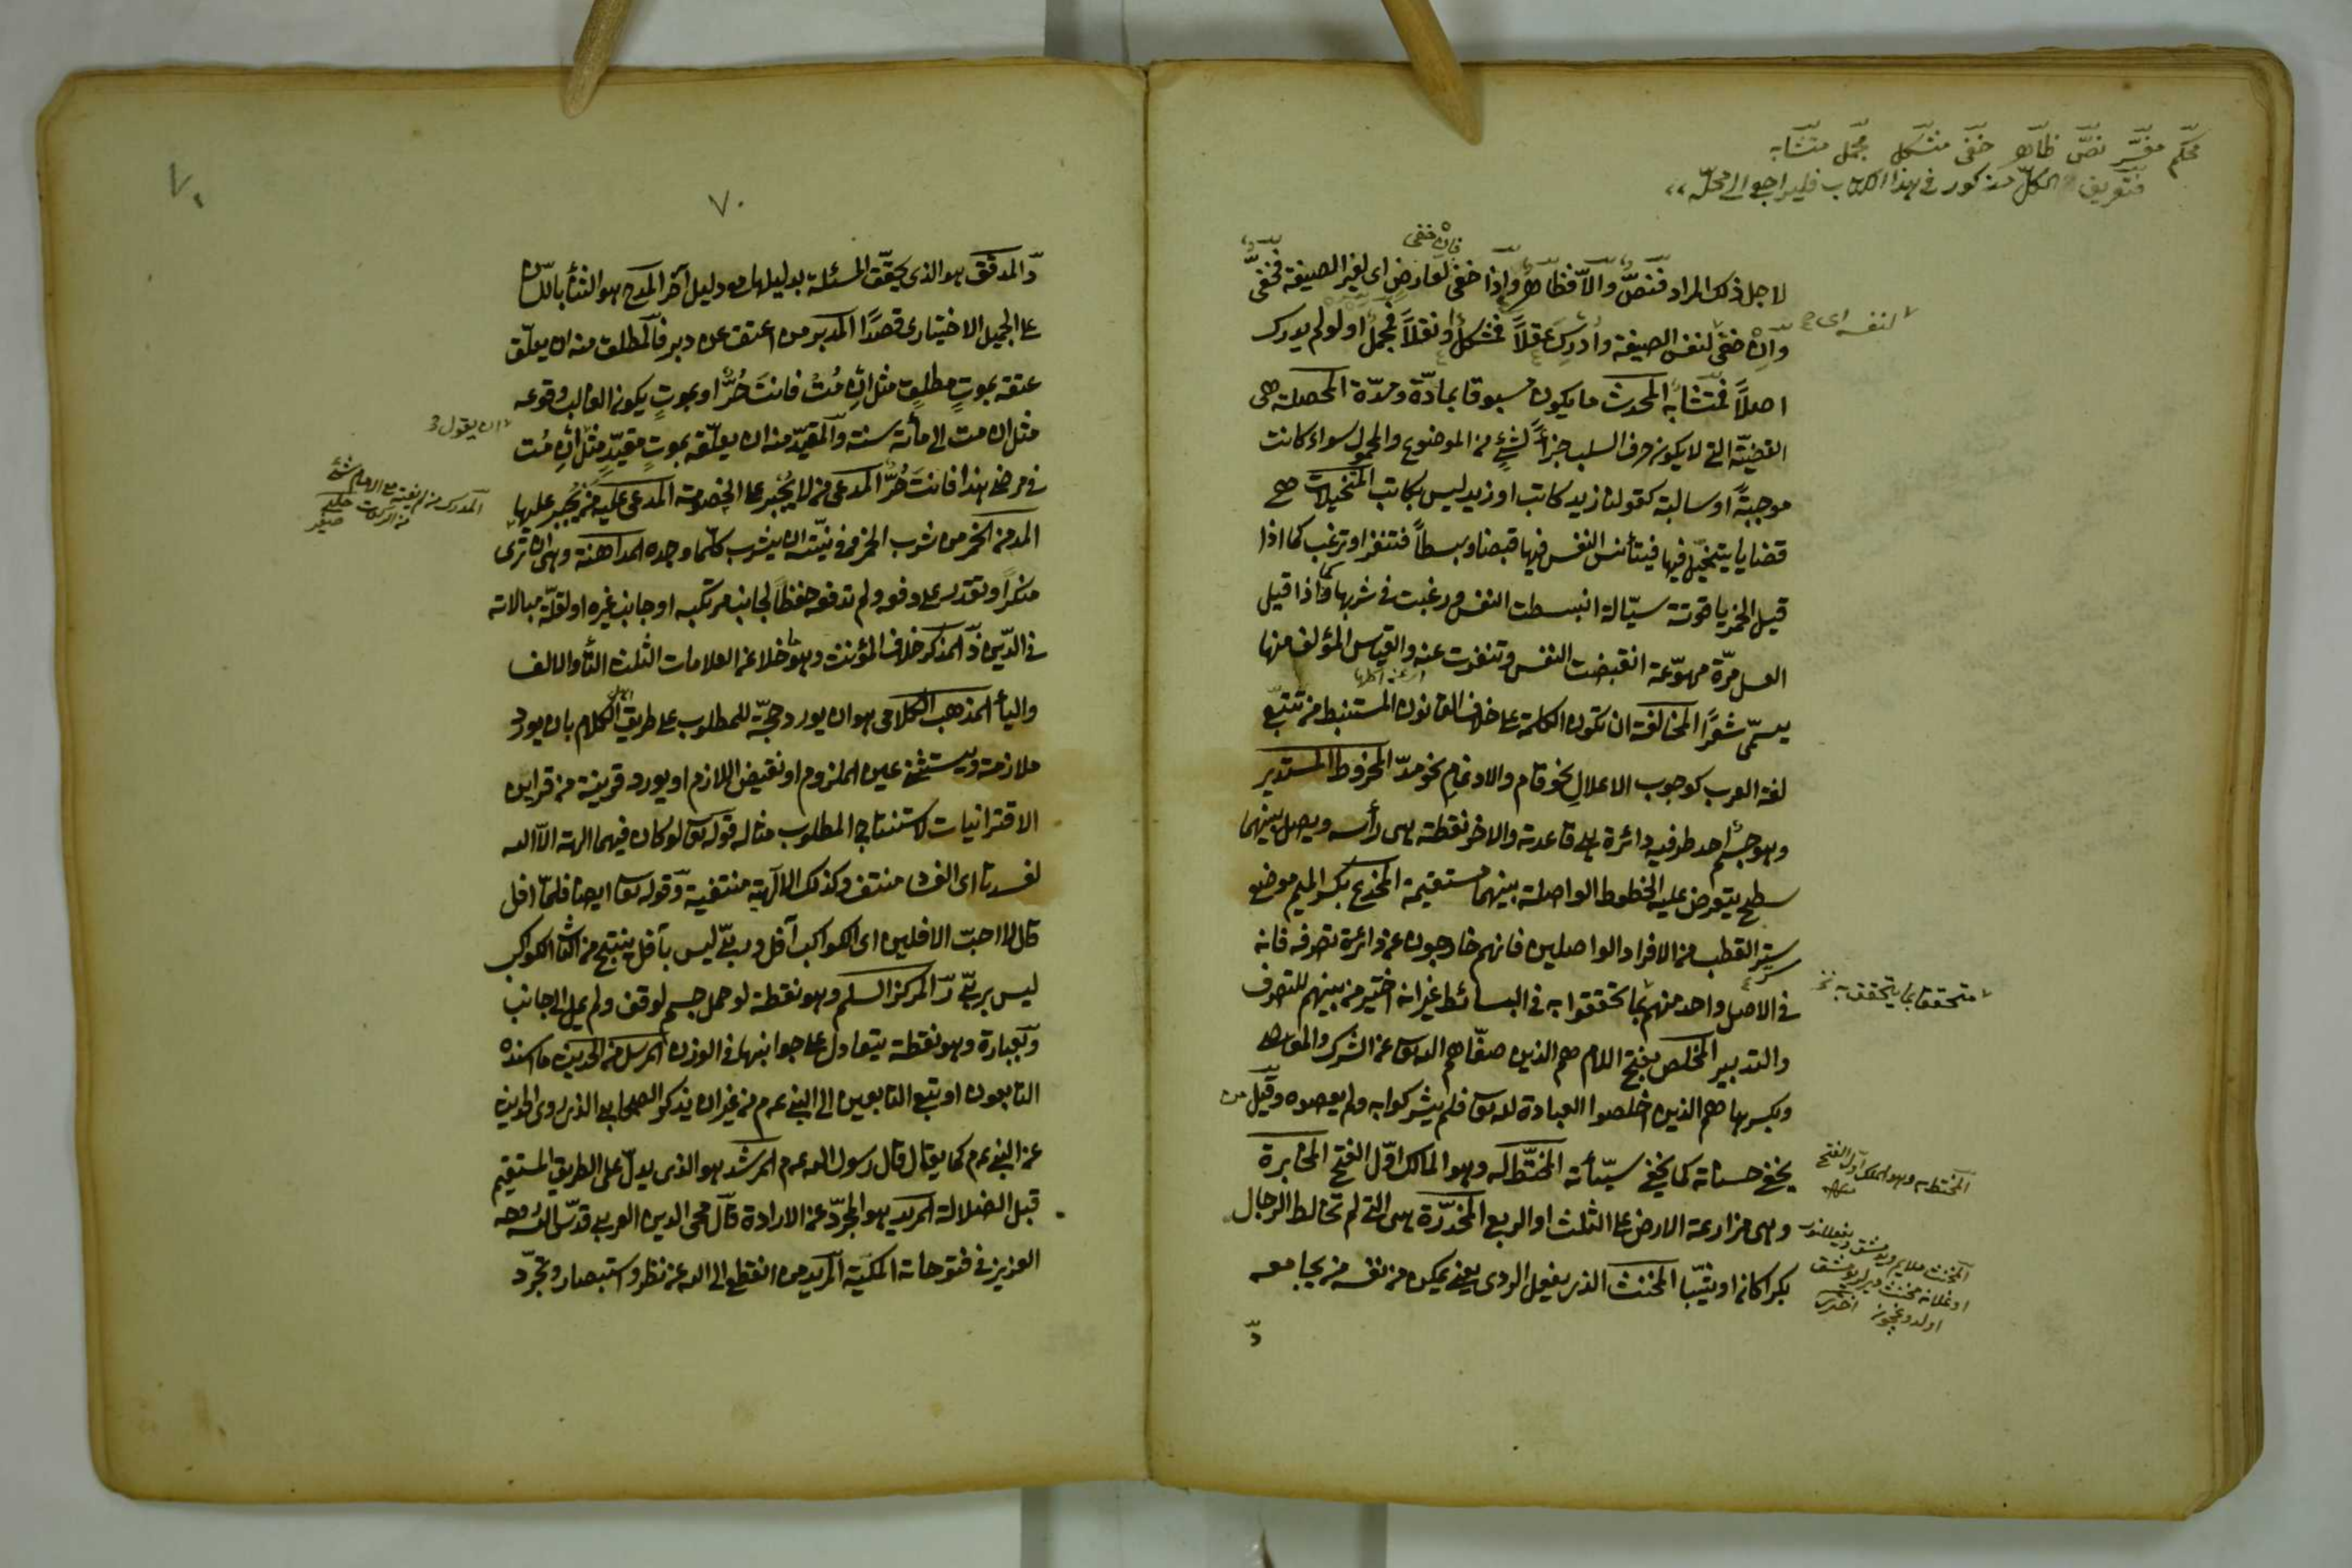 محكم مفسّر نصّ ظاهر خفى مشكل مجمل متشابه
فتعريف الكلّ مذكور فى هذا الكتاب فليراجع الى محلّه
فان خفى
لاجل ذلك المراد فنصّ والّا فظاهر واذا خفى لعارض اى لغير الصيغة فخفىّ
وان خفى لنفس الصيغة وادرك عقلًا فمشكل او نقلًا فمجمل او لم يدرك
لنفسه اى
اصلًا فمتشابه المحدث ما يكون مسبوقا بمادّة ومدّة المحصلة هى
القضيّة التى لا يكون حرف السلب جزأً لشئ من الموضوع والمحمول سواء كانت
موجبةً او سالبة كقولنا زيد كاتب او زيد ليس بكاتب المتخيلات هى
قضايا يتخيّل فيها فيتأثر النفس فيها قبضا وبسطاً فتنفر او ترغب كما اذا
قيل الخمر ياقوتة سيّالة انبسطت النفس ورغبت فى شربها واذا قيل
العسل مرّة مهوّعة انقبضت النفس وتنفرت عنه والقياس المؤلف منها
يسمّى شعرًا المخالفة ان تكون الكلمة على خلاف القانون المستنبط من تتبّع
لغة العرب كوجوب الاعلال نحو قام والادغام نحو مدّ المخروط المستدير
وهو جسم احد طرفيه دائرة هى قاعدته والاخر نقطة هى رأسه ويصل بينهما
سطح يتعرض عليه الخطوط الواصلة بينهما مستقيمة المخدع بكسر الميم موضع
ستر القطب من الافراد الواصلين فانهم خارجون عن دائرة تصرفه فانه
فى الاصل واحد منهم بما تحققوا به فى البسائط غير انه اختير من بينهم للتصرف
متحققا بما يتحقق به
والتدبير المخلص بفتح اللام هم الذين صفّاهم الله تعالى عن الشرك والمعاصى
وبكسرها هم الذين اخلصوا العبادة لله تعالى فلم يشركوا به ولم يعصوه وقيل من
يخفى حسناته كما يخفى سيّئاته المختطّ له وهو المالك اوّل الفتح المخابرة
المختط له وهو الملك اول الفتح
وهى مزارعة الارض على الثلث او الربع المخدّرة هى التى لم تخالط الرجال
بكرا كانت او ثيّبا المخنث الذى يفعل الردى يعنى يمكن من نفسه من يجامعه
د
٧٠
٧٠
دّ المدقق هو الذى يحقّق المسئلة بدليلها مع دليل آخر المدح هو الثناء باللسان
على الجميل الاختيارى قصدًا المدبر من اعتق عن دبر فالمطلق منه ان يعلّق
عتقه بموتٍ مطلقٍ مثل ان متُ فانتَ حُرٌّ او بموتٍ يكون الغالب وقوعه
مثل ان مت الى مائة سنة والمقيّد منه ان يعلّقه بموتٍ مقيّدٍ مثل ان مُت
ان يقول
فى مرضى هذا فانت حُرٌّ المدعى من لا يُجبر على الخصومة المدعى عليه من يُجبر عليها
المدمن الخمر من شرب الخمر وفى نيّته ان يشرب كلّما وجده المداهنة وهى ان ترى
منكرًا وتقدر على دفعه ولم تدفعه حفظاً لجانب مرتكبه او جانب غيره او لقلّة مبالاته
فى الدّين ذ المذكر خلاف المؤنث وهو ما خلا عن العلامات الثلث التاء والالف
والياء المذهب الكلامى هو ان يورد حجّة للمطلوب على طريق اهل الكلام بان يورد
ملازمة ويستثنى عين الملزوم او نقيض اللازم او يورد قرينة من قراين
الاقترانيات لاستنتاج المطلوب مثاله قوله تعالى لو كان فيهما الهة الّا الله
لفسدتا اى الفساد منتف وكذلك الآلهة منتفية وقوله تعالى ايضا فلمّا افل
قال لا احبّ الافلين اى الكواكب آفل وربّى ليس بآفل ينتج من الثانى الكواكب
ليس بربّى رّ المركز السلم وهو نقطة لو حمل جسم لوقف ولم يمل الى جانب
وبعبارة وهو نقطة يتعادل على جوانبها فى الوزن المرسل من الحديث ما اسنده
التابعون او تبع التابعين الى النبى عم م من غير ان يذكر الصحابى الذى روى الحديث
عن النبى عم كما يقال قال رسول الله عم م المرشد هو الذى يدلّ على الطريق المستقيم
قبل الضلالة المريد هو المجرّد عن الارادة قال محى الدين العربى قدّس الله روحه
العزيز فى فتوحاته المكّية المريد من انقطع الى الله عن نظر واستبصار وتجرّد